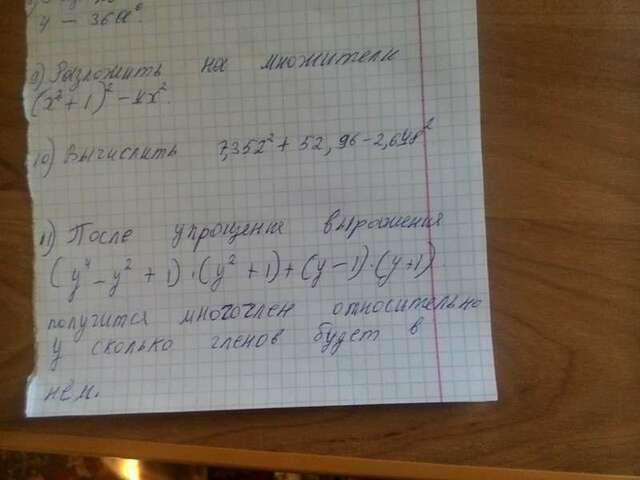 4 − 36a⁶
9) Разложить на множители
(x² + 1)² − 4x².
10) Вычислить 7,352² + 52,96 − 2,648²
11) После упрощение выражения
(y⁴ − y² + 1)·(y² + 1) + (y − 1)·(y + 1)
получится многочлен относительно
y сколько членов будет в
нём.